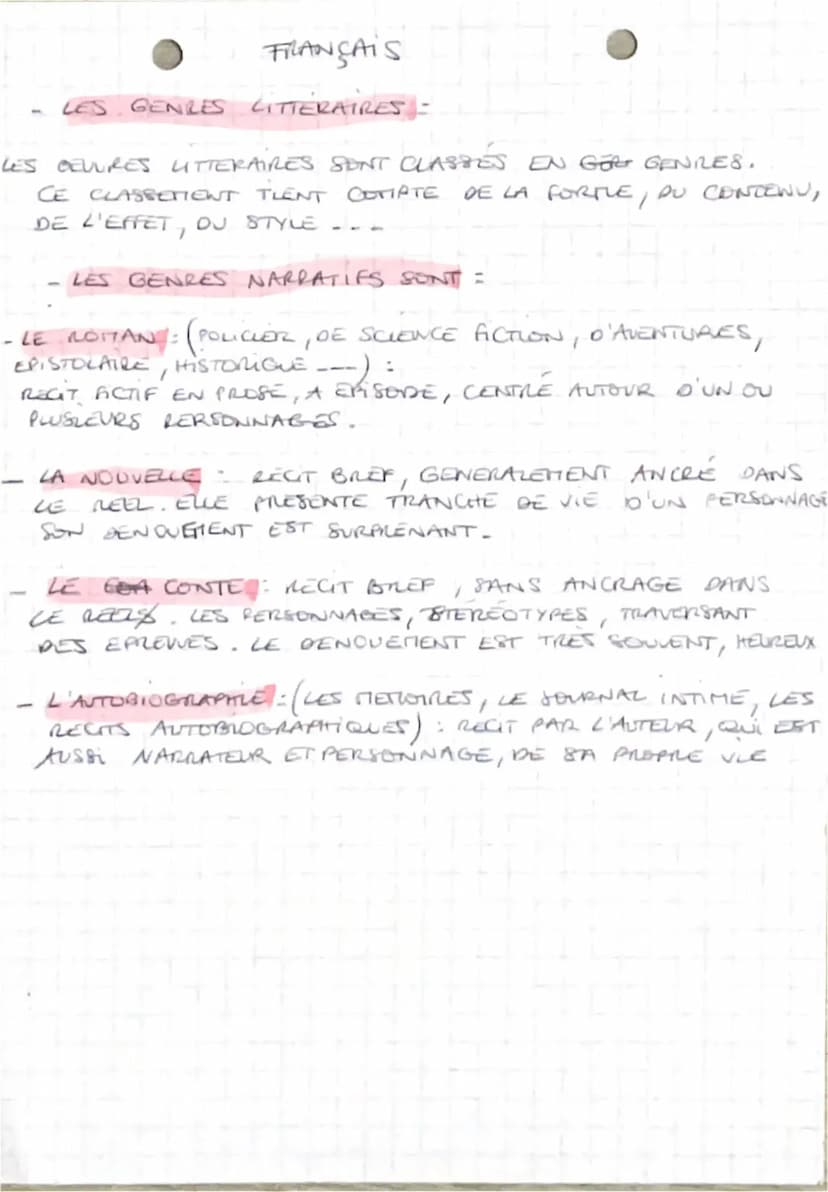 FRANÇAIS
- LES GENRES LITTÉRAIRES :
LES OEUVRES LITTERAIRES SONT CLASSÉS EN GENRES.
CE CLASSEMENT TIENT COMPTE DE LA FORME, DU CONTENU,
DE L'EFFET, DU STYLE ---
- LES GENRES NARRATIFS SONT :
- LE ROMAN : (POLICIER, DE SCIENCE FICTION, D'AVENTURES,
EPISTOLAIRE, HISTORIQUE ---) :
RECIT FICTIF EN PROSE, A EPISODE, CENTRÉ AUTOUR D'UN OU
PLUSIEURS PERSONNAGES.
- LA NOUVELLE : RECIT BREF, GENERALEMENT ANCRÉ DANS
LE REEL. ELLE PRESENTE TRANCHE DE VIE D'UN PERSONNAGE
SON DENOUEMENT EST SURPRENANT.
- LE CONTE : RECIT BREF, SANS ANCRAGE DANS
LE REEL. LES PERSONNAGES, STEREOTYPES, TRAVERSANT
DES EPREUVES. LE DENOUEMENT EST TRES SOUVENT, HEUREUX
- L'AUTOBIOGRAPHIE : (LES MEMOIRES, LE JOURNAL INTIME, LES
RECITS AUTOBIOGRAPHIQUES) : RECIT PAR L'AUTEUR, QUI EST
AUSSI NARRATEUR ET PERSONNAGE, DE SA PROPRE VIE